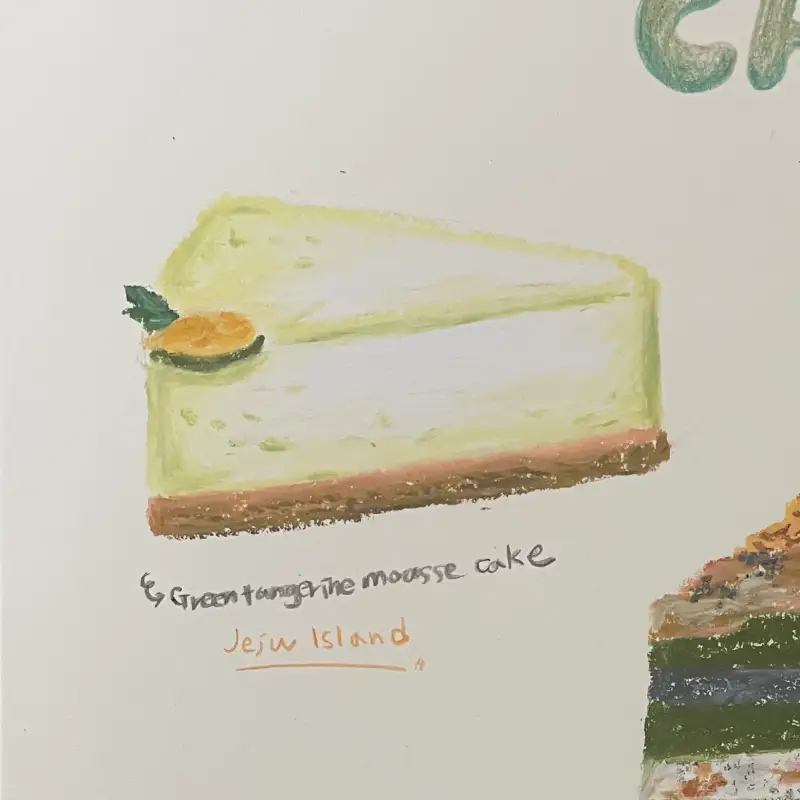 CA
Green tangerine moasse cake
Jeju Island